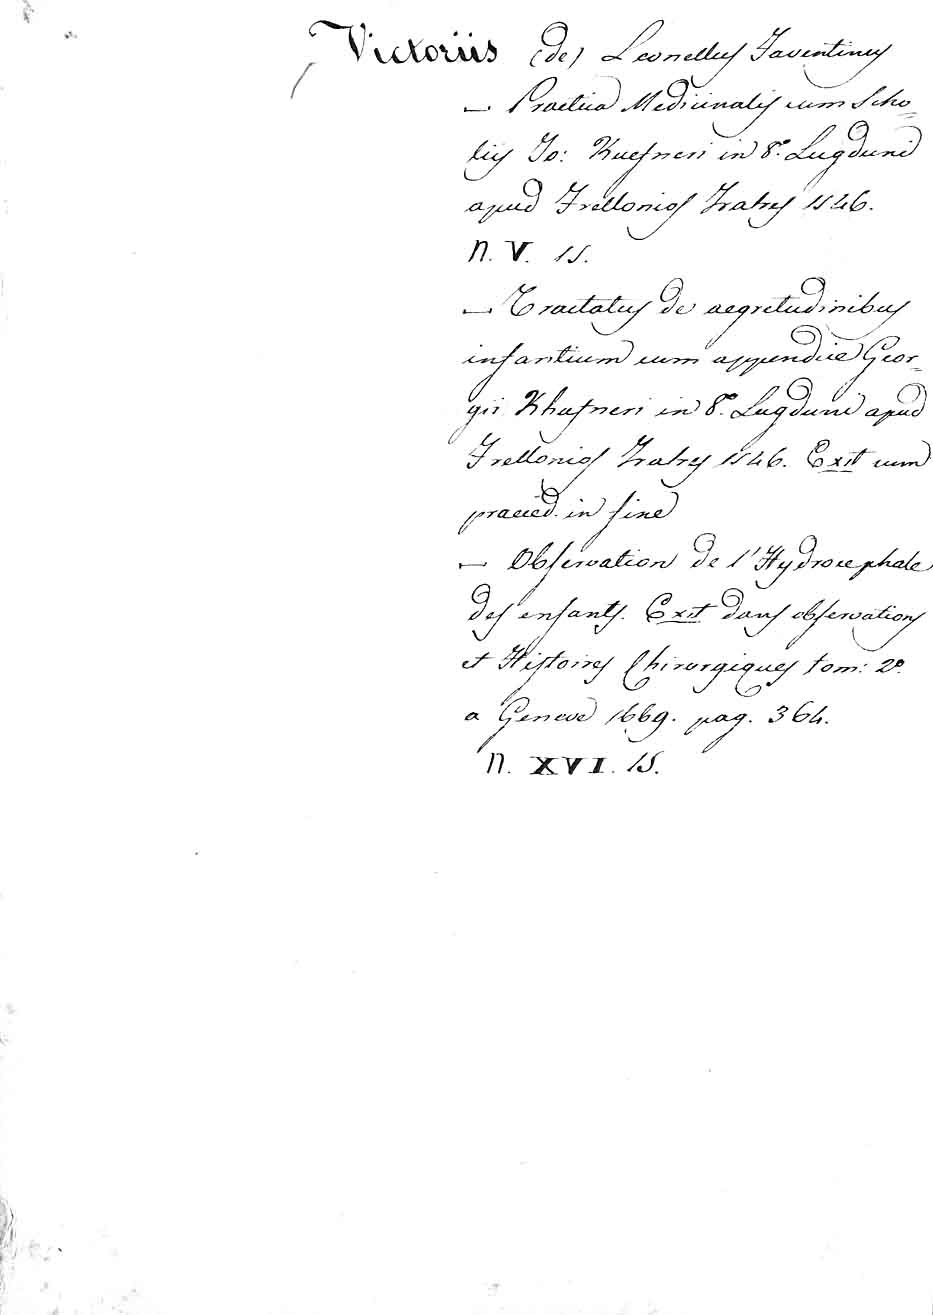 Victoriis (de) Leonellus Faventinus
— Practica Medicinalis cum Scho=
liis Jo: Kuefneri in 8.° Lugduni
apud Frellonios Fratres 1546.
N. V. 15.
— Tractatus de aegretudinibus
infantium cum appendice Geor=
gii Khufneri in 8.° Lugduni apud
Frellonios Fratres 1546. Exit cum
praeced. in fine
— Observation de l'Hydrocephale
des enfants. Exit dans observations
et Histoires Chirurgiques tom: 2.°
a Geneve 1669. pag. 364.
N. XVI. 15.